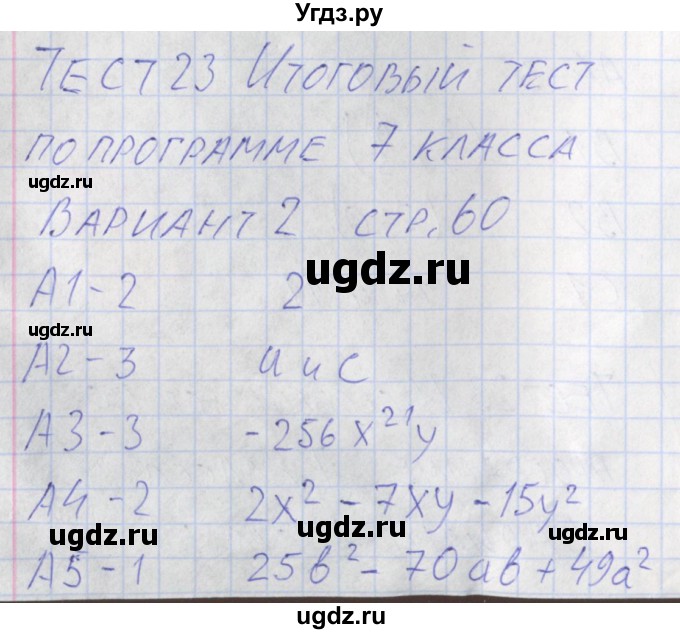 Угдз.ру
ТЕСТ 23 ИТОГОВЫЙ ТЕСТ
ПО ПРОГРАММЕ 7 КЛАССА
ugdz.ru
ВАРИАНТ 2 СТР. 60
ugdz.ru
А1 - 2 2
ugdz.ru
А2 - 3 И и С
А3 - 3 -256x²¹y
ugdz.ru
А4 - 2 2x² - 7xy - 15y²
ugdz.ru ugdz.ru
А5 - 1 25b² - 70ab + 49a²
ugdz.ru